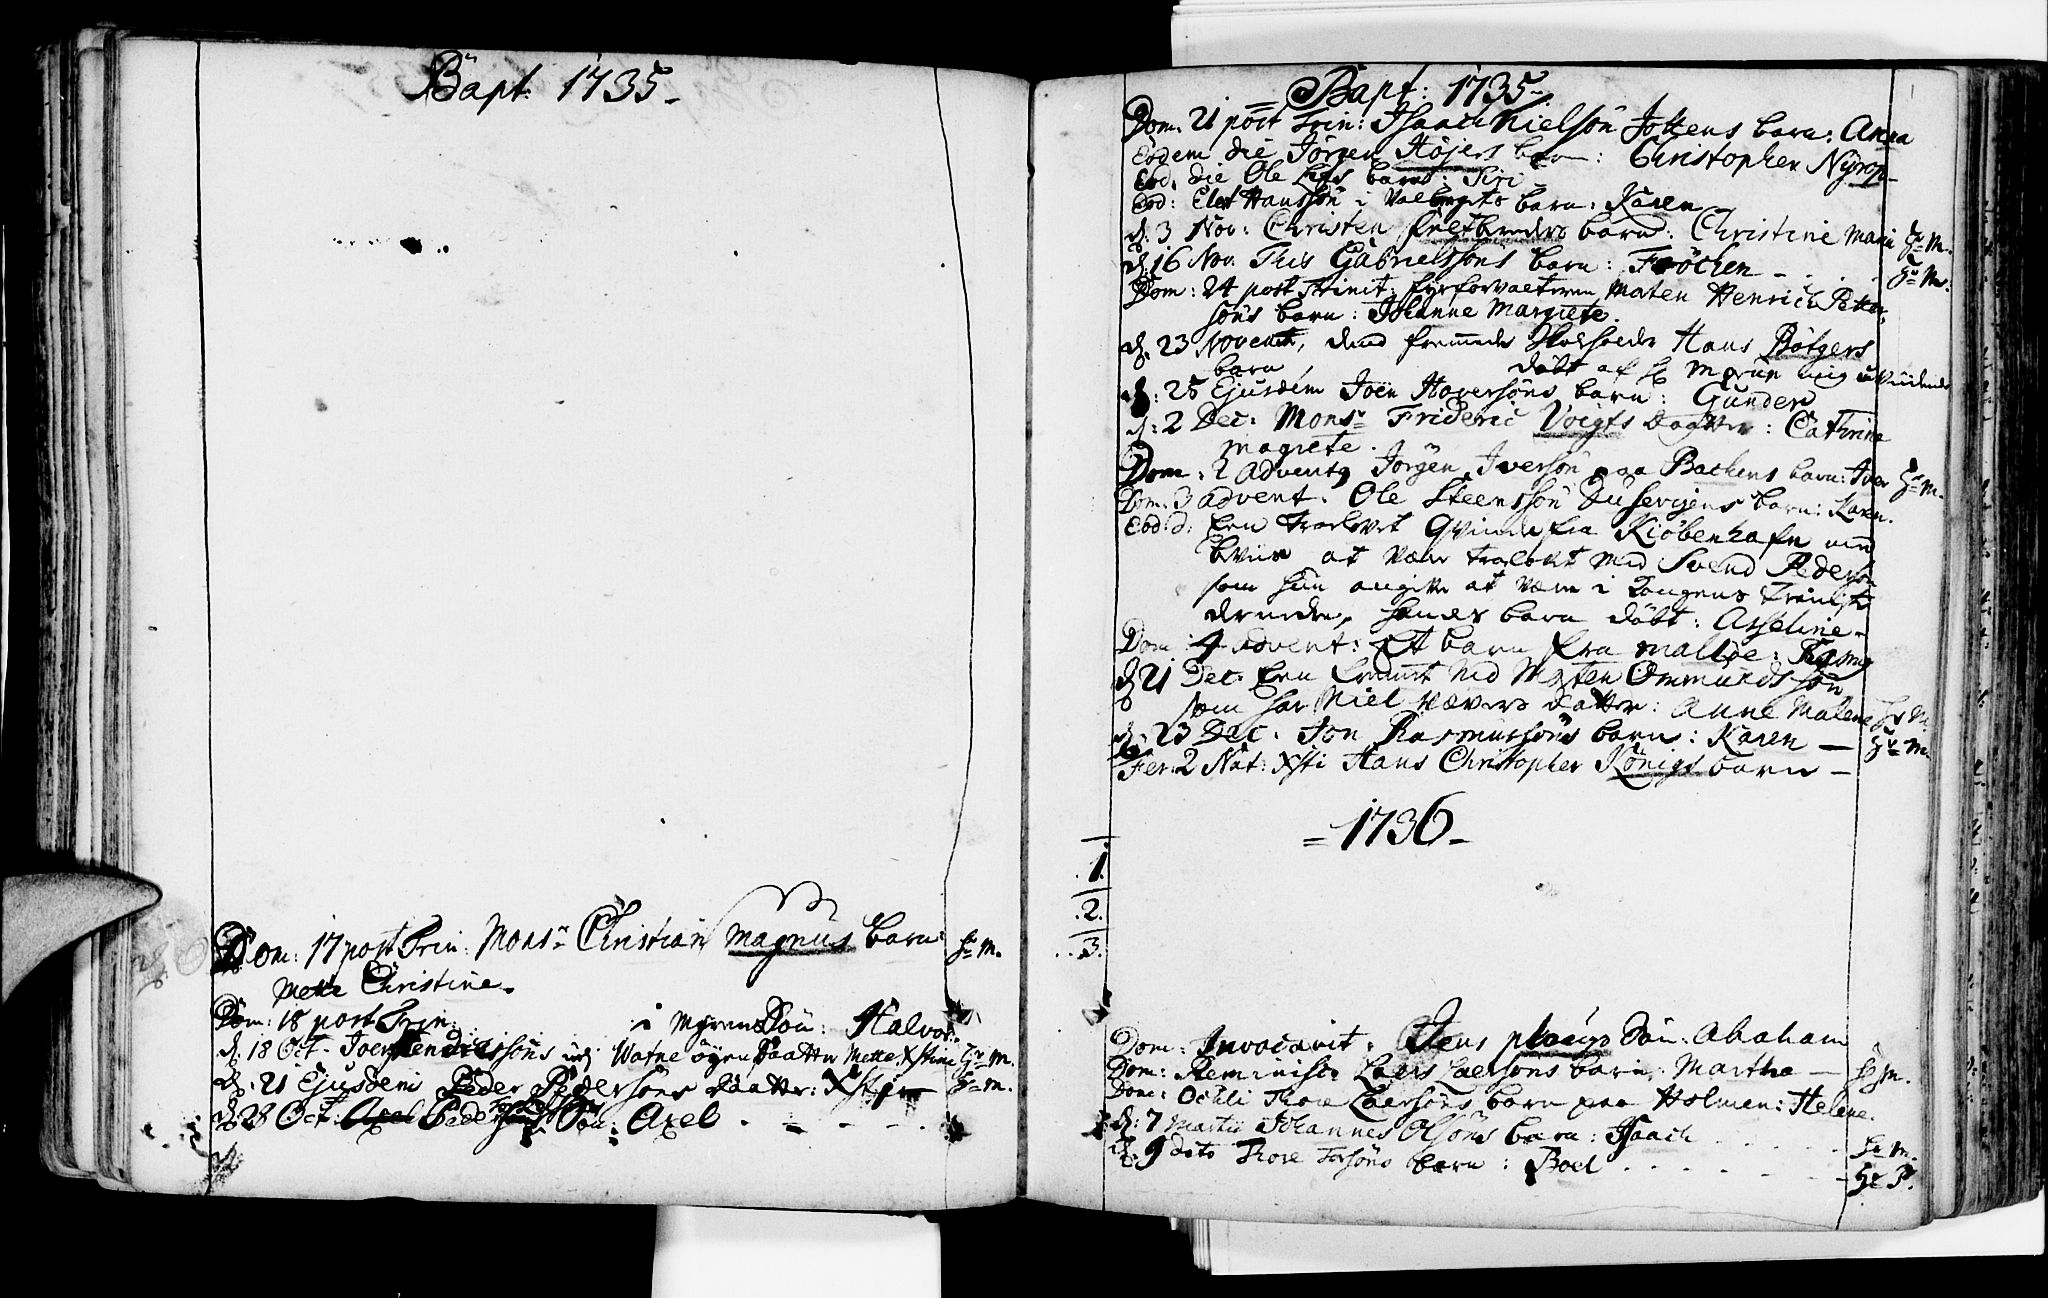 Bapt: 1735.
Dom: 17 post Trin: Monsr Christian Magnus barn: Hr M.
Mette Christine.
Dom: 18 post Trin: i Myrens Sön: Halvor.
d. 18 Oct. Joen Watne öyen Daatter Mette Xstine Hr M.
d. 21 Ejusdem Peder Pedersöns Daatter: Hr M.
d. 28 Oct: Sön: Axel
Bapt: 1735.
Dom: 21 post Trin: Isaach Nielsön Jottens barn: Anna
Eodem die Jörgen Höjers barn: Christopher Nyrop
Eod: die Ole barn: Siri
Eod: Hanssön i barn: Karen
d. 3 Nov: Christen barn: Christine Marie Hr M.
d. 16 Nov. This Gabrielssöns barn: Fröchen Hr M.
Dom: 24 post Trinit: fyrforvalteren Maten Henrich Petter
söns barn: Johanne Margrete.
d. 23 Novemb, dend fremmede Hans Bötgers
barn, döbt af
d: 25 Ejusdem Joen Haversöns barn: Gunder
d: 2 Dec: Monsr Frideric Voigts Dogtter: Cathrine
Magrete.
Dom: 2 Advents Jörgen Iversön paa Bachens barn: Iver Hr M.
Dom: 3 advent. Ole Steenssön barn: Karen.
Eod: d: Een Qvinde fra Kiöbenhafn
at være med Svend Peders
som hun angiver at være i Kongens
hendes barn döbt: Asseline
Dom: 4 advent: Et barn fra
d 21 Dec. Een ved Maten Ommundssön
som har Niel Vævers datter: Anne Malene Hr M.
d. 23 Dec. Jon Rasmussöns barn: Karen Hr M.
Fer: 2 Nat: Xsti Hans Christopher Königs barn
1736
1.
2.
3.
Dom: Invocavit: Jens plougs Sön: Abaham
Dom: Reminisc: Laers Laersöns barn: Martha Hr M.
Dom: Oculi Thore Laersöns barn paa Holmen: Helene.
d: 7 Martii Johannes Olsöns barn: Isaach Hr M.
d. 9 dito Thore barn: Boel Hr P.